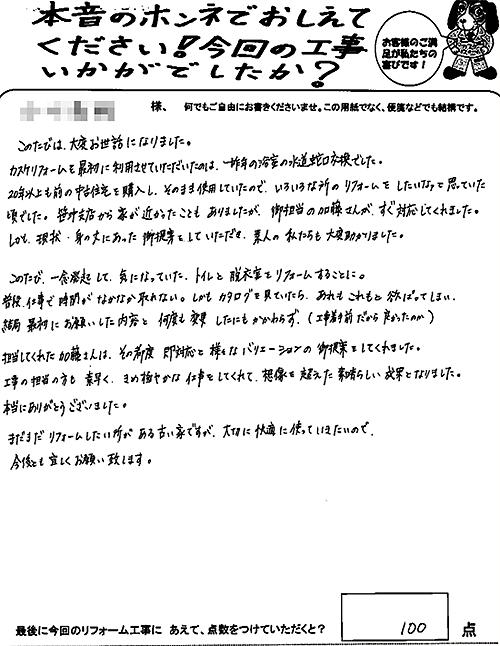 本音のホンネでおしえて
ください!今回の工事
いかがでしたか?
お客様のご満
足が私たちの
喜びです!
様、 何でもご自由にお書きくださいませ。この用紙でなく、便箋などでも結構です。
このたびは、大変お世話になりました。
カスケリフォームを最初に利用させていただいたのは、一昨年の浴室の水道蛇口交換でした。
20年以上も前の中古住宅を購入し、そのまま使用していたので、いろいろな所のリフォームをしたいなぁと思っていた
頃でした。笹沖支店から家が近かったこともありましたが、御担当の加藤さんが、すぐ対応してくれました。
しかも、現状・身の丈にあった御提案をしていただき、素人の私たちも大変助かりました。
このたび、一念発起して、気になっていた、トイレと脱衣室をリフォームすることに。
普段、仕事で時間がなかなか取れない。しかもカタログを見ていたら、あれもこれもと欲ばってしまい、
結局 最初にお願いした内容と 何度も変更したにもかかわらず、(工事着手前だから良かったのか)
担当してくれた加藤さんは、その都度 即対応と様々なバリエーションの御提案をしてくれました。
工事の担当の方も 素早く、きめ細やかな仕事をしてくれて、想像を超えた素晴らしい成果となりました。
本当にありがとうございました。
まだまだリフォームしたい所がある古い家ですが、大切に快適に使っていきたいので、
今後とも宜しくお願い致します。
最後に今回のリフォーム工事に あえて、点数をつけていただくと? 100 点